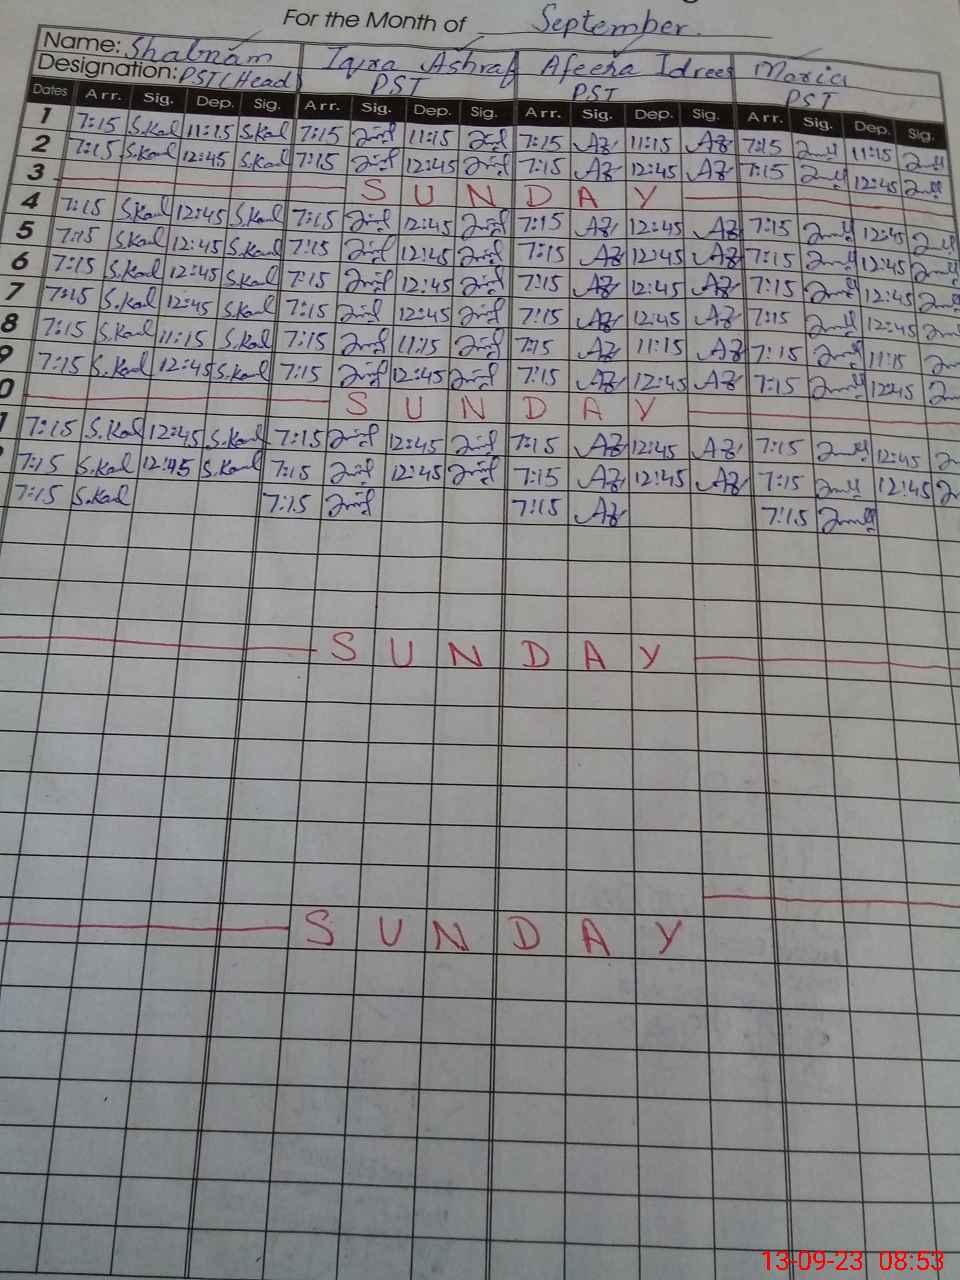 For the Month of September.
Name: Shabnam Iqra Ashraf Afeera Idrees Maria
Designation: PST(Head) PST PST PST
Dates Arr. Sig. Dep. Sig. Arr. Sig. Dep. Sig. Arr. Sig. Dep. Sig. Arr. Sig. Dep. Sig.
1 7:15 S.Kal 11:15 S.Kal 7:15 11:15 7:15 AZ 11:15 AZ 7:15 11:15
2 7:15 S.Kal 12:45 S.Kal 7:15 12:45 7:15 AZ 12:45 AZ 7:15 12:45
3 S U N D A Y
4 7:15 S.Kal 12:45 S.Kal 7:15 12:45 7:15 AZ 12:45 AZ 7:15 12:45
5 7:15 S.Kal 12:45 S.Kal 7:15 12:45 7:15 AZ 12:45 AZ 7:15 12:45
6 7:15 S.Kal 12:45 S.Kal 7:15 12:45 7:15 AZ 12:45 AZ 7:15 12:45
7 7:15 S.Kal 12:45 S.Kal 7:15 12:45 7:15 AZ 12:45 AZ 7:15 12:45
8 7:15 S.Kal 11:15 S.Kal 7:15 11:15 7:15 AZ 11:15 AZ 7:15 11:15
9 7:15 S.Kal 12:45 S.Kal 7:15 12:45 7:15 AZ 12:45 AZ 7:15 12:45
0 S U N D A Y
1 7:15 S.Kal 12:45 S.Kal 7:15 12:45 7:15 AZ 12:45 AZ 7:15 12:45
7:15 S.Kal 12:45 S.Kal 7:15 12:45 7:15 AZ 12:45 AZ 7:15 12:45
7:15 S.Kal 7:15 7:15 AZ 7:15
S U N D A Y
S U N D A Y
13-09-23 08:53